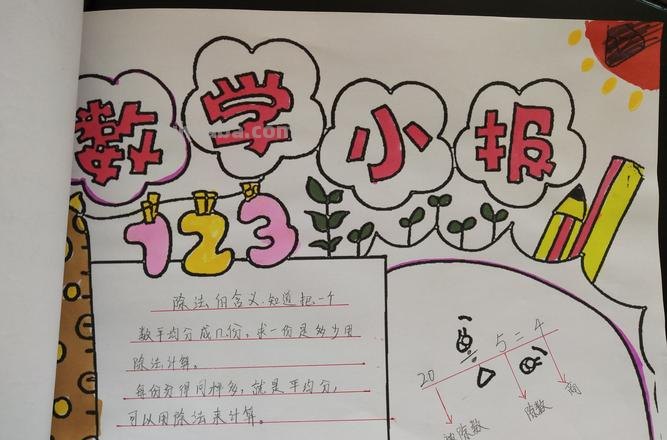 数学小报
123
除法的含义.知道把一个
数平均分成几份,求一份是多少用
除法计算。
每份分得同样多,就是平均分,
可以用除法来计算。
20 ÷ 5 = 4
被除数 除数 商